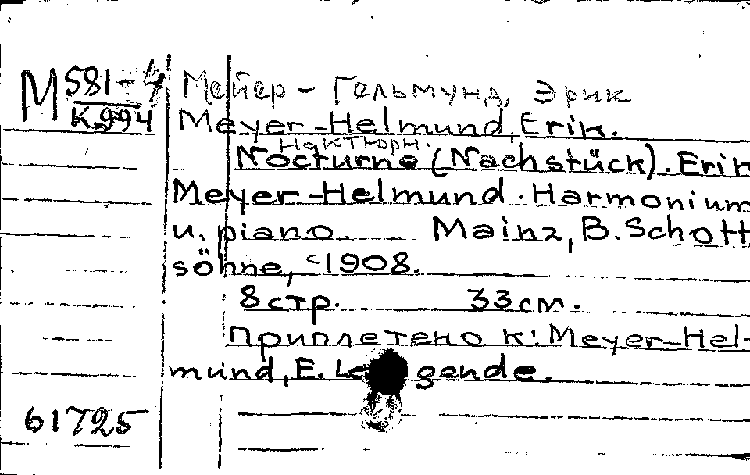 М 581-4
К994
Мейер - Гельмунд, Эрик
Meyer-Helmund, Erik.
Ноктюрн.
Nocturne (Nachstück). Erik
Meyer-Helmund. Harmonium
u. piano. Mainz, B. Schott
söhne, c1908.
8 стр. 33 см.
Приплетено к: Meyer-Hel-
mund, E. Legende.
61725